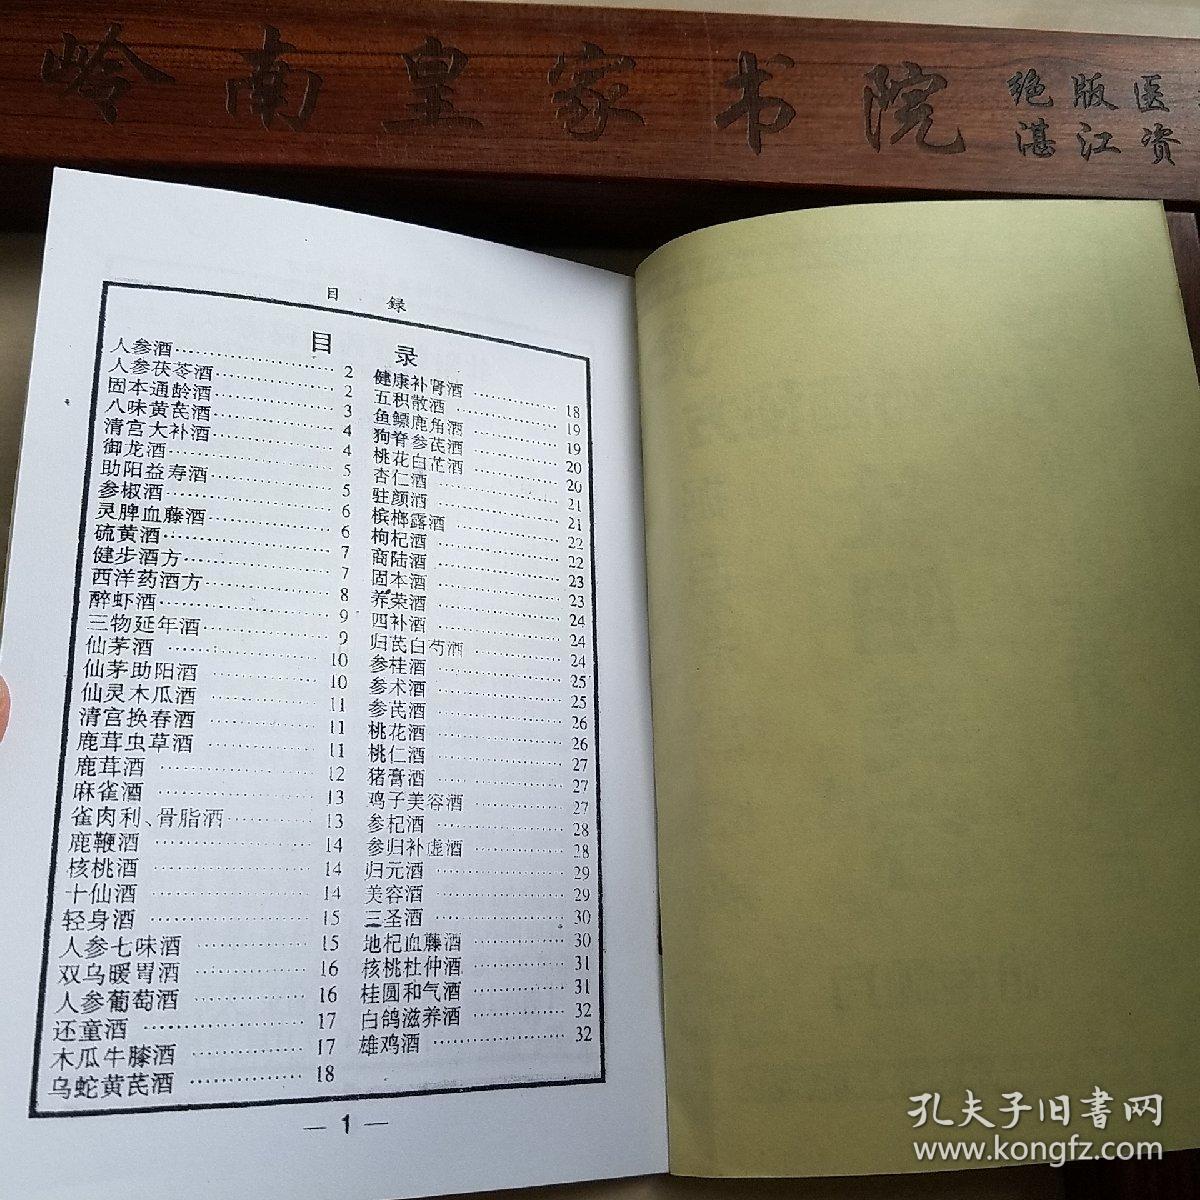 岭南皇家书院
绝版医
湛江资
目 録
目 录
人参酒 2
人参茯苓酒 2
固本通龄酒 3
八味黄芪酒 4
清宫大补酒 4
御龙酒 5
助阳益寿酒 5
参椒酒 6
灵脾血藤酒 6
硫黄酒 7
健步酒方 7
西洋药酒方 8
醉虾酒 9
三物延年酒 9
仙茅酒 10
仙茅助阳酒 10
仙灵木瓜酒 11
清宫换春酒 11
鹿茸虫草酒 11
鹿茸酒 12
麻雀酒 13
雀肉利、骨脂酒 13
鹿鞭酒 14
核桃酒 14
十仙酒 14
轻身酒 15
人参七味酒 15
双乌暖胃酒 16
人参葡萄酒 16
还童酒 17
木瓜牛膝酒 17
乌蛇黄芪酒 18
健康补肾酒 18
五积散酒 19
鱼鳔鹿角酒 19
狗脊参芪酒 20
桃花白芷酒 20
杏仁酒 21
驻颜酒 21
槟榔露酒 22
枸杞酒 22
商陆酒 23
固本酒 23
养荣酒 24
四补酒 24
归芪白芍酒 24
参桂酒 25
参术酒 25
参芪酒 26
桃花酒 26
桃仁酒 27
猪膏酒 27
鸡子美容酒 27
参杞酒 28
参归补虚酒 28
归元酒 29
美容酒 29
三圣酒 30
地杞血藤酒 30
核桃杜仲酒 31
桂圆和气酒 31
白鸽滋养酒 32
雄鸡酒 32
— 1 —
孔夫子旧書网
www.kongfz.com